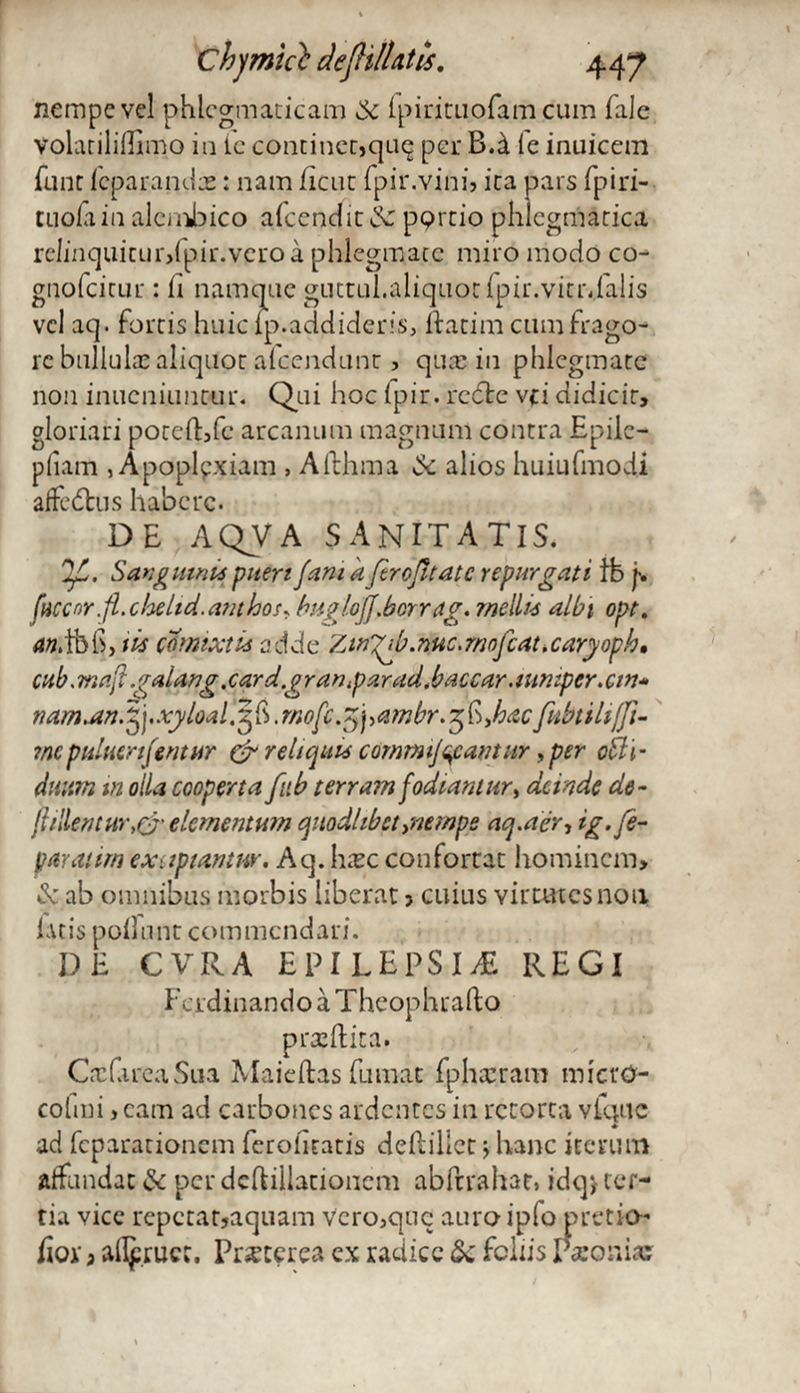 Chymicè deſtillatis. 447
nempe vel phlegmaticam & ſpirituoſam cum ſale
volatiliſſimo in ſe continet,quę per B.à ſe inuicem
ſunt ſeparandæ : nam ſicut ſpir.vini, ita pars ſpiri-
tuoſa in alembico aſcendit & portio phlegmatica
relinquitur,ſpir.vero à phlegmate miro modo co-
gnoſcitur : ſi namque guttul.aliquot ſpir.vitr.ſalis
vel aq. fortis huic ſp.addideris, ſtatim cum frago-
re bullulæ aliquot aſcendunt , quæ in phlegmate
non inueniuntur. Qui hoc ſpir. recte vti didicit,
gloriari poteſt,ſe arcanum magnum contra Epile-
pſiam , Apoplęxiam , Aſthma & alios huiuſmodi
affectus habere.
DE AQVA SANITATIS.
♃. Sanguinis pueri ſani à ſeroſitate repurgati ℔ j.
ſuccor.fl.chelid.anthos, bugloſſ.borrag. mellis albi opt.
an.℔ß, iis comixtis adde Zinʒib.nuc.moſcat.caryoph.
cub.maſt.galang.card.gran.parad.baccar.iuniper.cin-
nam.an.℥j.xyloal.℥ß.moſc.ʒj,ambr.ʒß,hæc ſubtiliſſi-
me puluerisentur & reliquis commiſceantur , per octi-
duum in olla cooperta ſub terram fodiantur, deinde de-
ſtillentur,& elementum quodlibet,nempe aq.aër, ig. ſe-
paratim excipiantur. Aq. hæc confortat hominem,
& ab omnibus morbis liberat , cuius virtutes non
ſatis poſſunt commendari.
DE CVRA EPILEPSIÆ REGI
Ferdinando à Theophraſto
præſtita.
Cæſarea Sua Maieſtas ſumat ſphæram micro-
coſmi , eam ad carbones ardentes in retorta vſque
ad ſeparationem ſeroſitatis deſtillet ; hanc iterum
affundat & per deſtillationem abſtrahat, idq; ter-
tia vice repetat,aquam vero,quę auro ipſo pretio-
ſior , aſſeruet. Præterea ex radice & foliis Pæoniæ